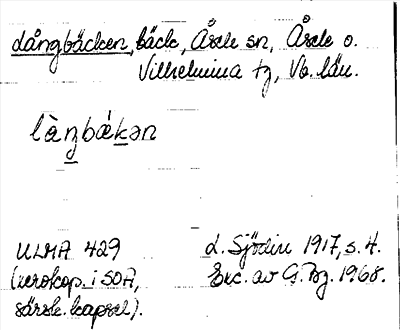 Långbäcken, bäck, Åsele sn, Åsele o.
Vilhelmina tg, Vb. län.
làŋbǽkən
ULMA 429
(xerokop. i SOA,
särsk. kapsel).
d. Sjödin 1917, s. 4.
Exc. av G. Bg. 1968.